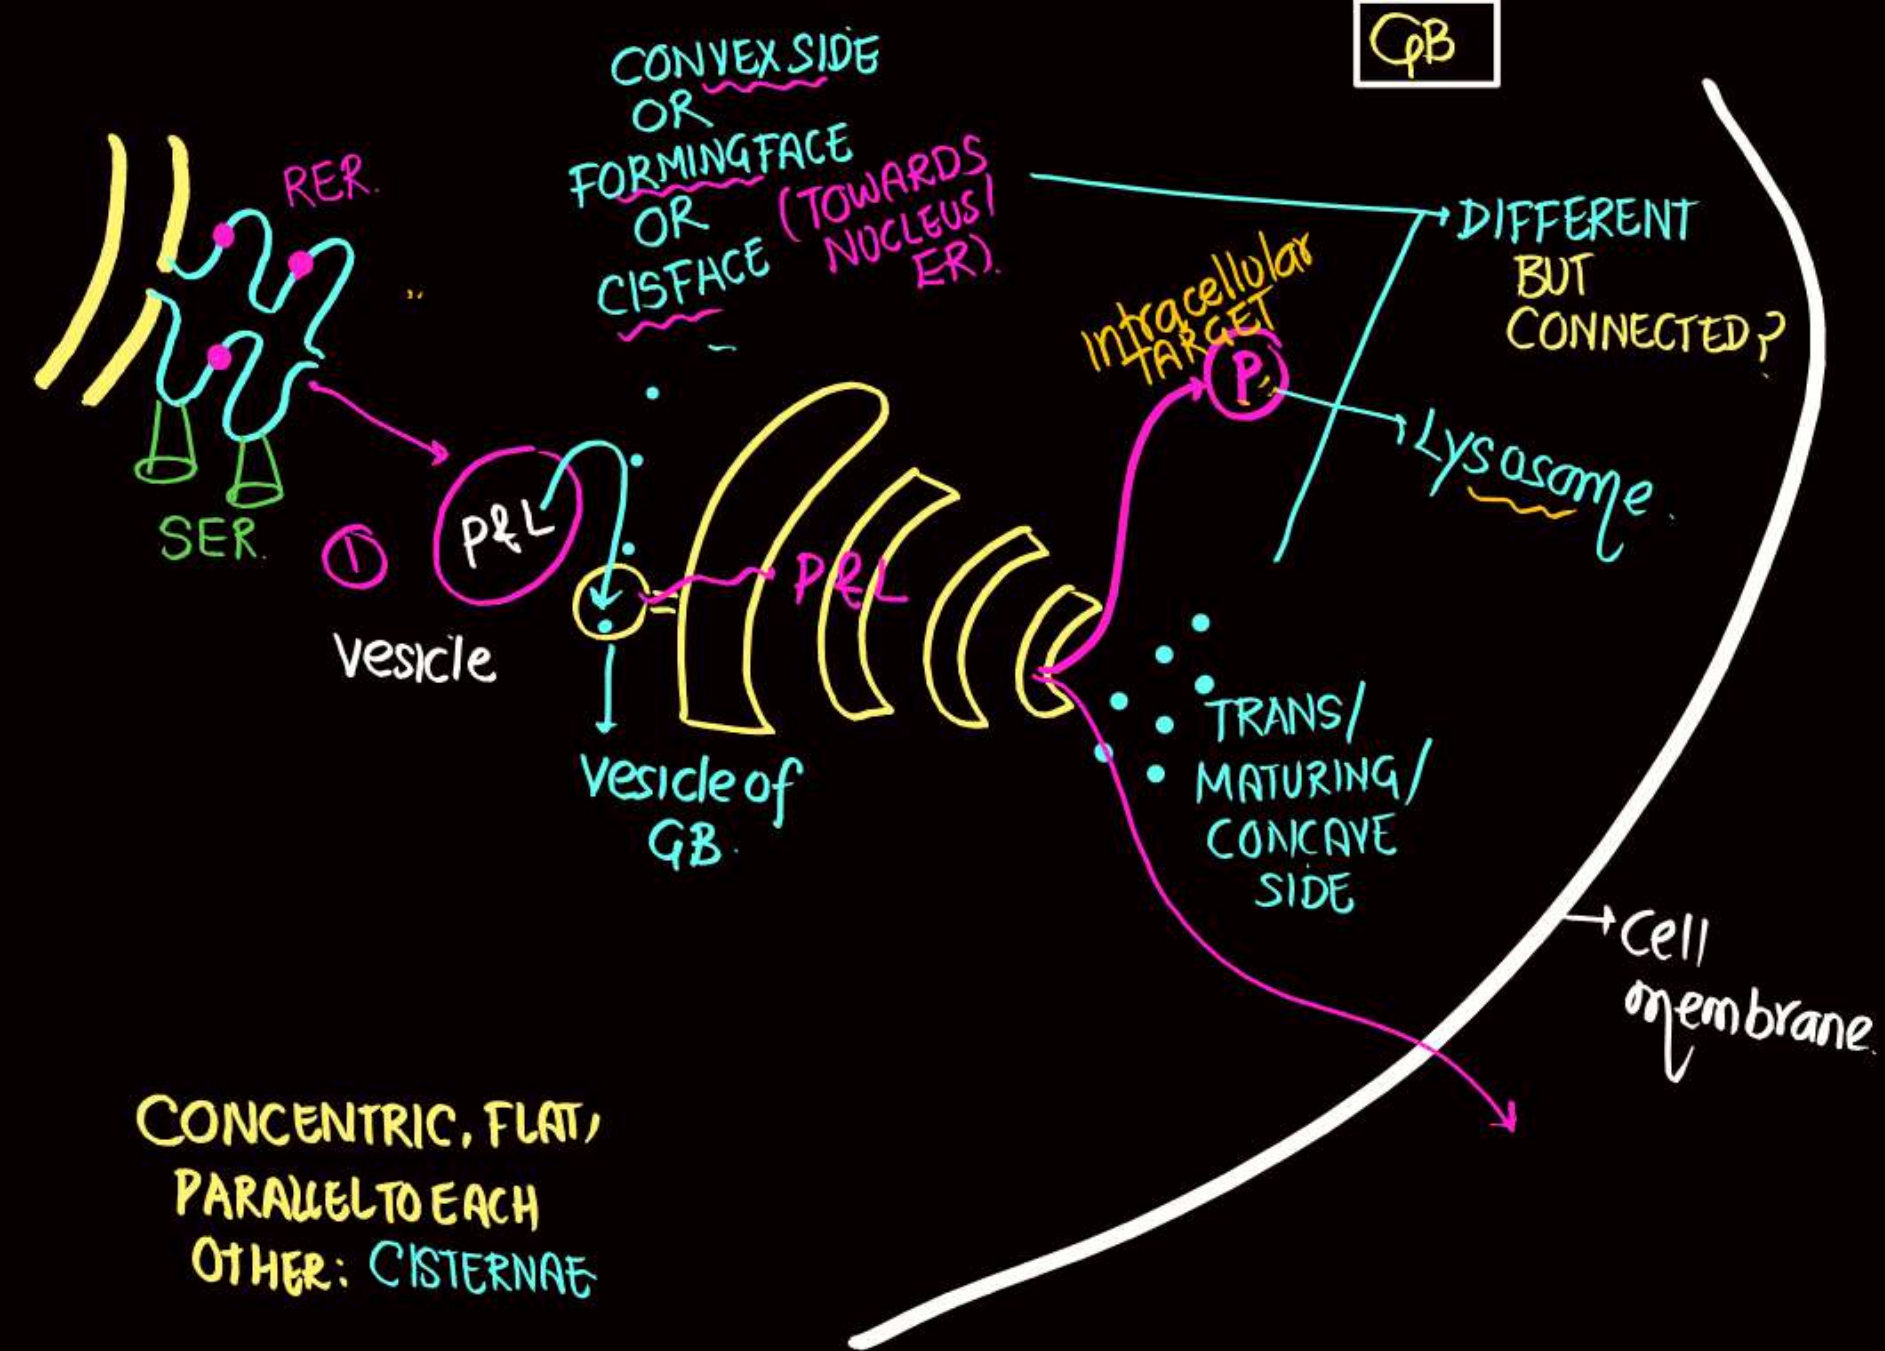 GB
CONVEX SIDE
OR
FORMING FACE
OR
CISFACE
(TOWARDS
NUCLEUS/
ER).
RER.
SER.
1
P&L
Vesicle
P&L
Vesicle of
GB.
Intracellular
TARGET
P
DIFFERENT
BUT
CONNECTED?
Lysosome.
TRANS/
MATURING/
CONCAVE
SIDE
Cell
membrane.
CONCENTRIC, FLAT,
PARALLEL TO EACH
OTHER: CISTERNAE